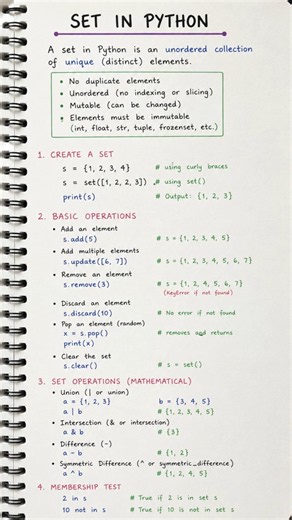 SET IN PYTHON
A set in Python is an unordered collection
of unique (distinct) elements.
• No duplicate elements
• Unordered (no indexing or slicing)
• Mutable (can be changed)
• Elements must be immutable
(int, float, str, tuple, frozenset, etc.)
1. CREATE A SET
s = {1, 2, 3, 4} # using curly braces
s = set([1, 2, 2, 3]) # using set()
print(s) # Output: {1, 2, 3}
2. BASIC OPERATIONS
• Add an element
s.add(5) # s = {1, 2, 3, 4, 5}
• Add multiple elements
s.update([6, 7]) # s = {1, 2, 3, 4, 5, 6, 7}
• Remove an element
s.remove(3) # s = {1, 2, 4, 5, 6, 7}
(KeyError if not found)
• Discard an element
s.discard(10) # No error if not found
• Pop an element (random)
x = s.pop() # removes and returns
print(x)
• Clear the set
s.clear() # s = set()
3. SET OPERATIONS (MATHEMATICAL)
• Union (| or union)
a = {1, 2, 3} b = {3, 4, 5}
a | b # {1, 2, 3, 4, 5}
• Intersection (& or intersection)
a & b # {3}
• Difference (-)
a - b # {1, 2}
• Symmetric Difference (^ or symmetric_difference)
a ^ b # {1, 2, 4, 5}
4. MEMBERSHIP TEST
2 in s # True if 2 is in set s
10 not in s # True if 10 is not in set s